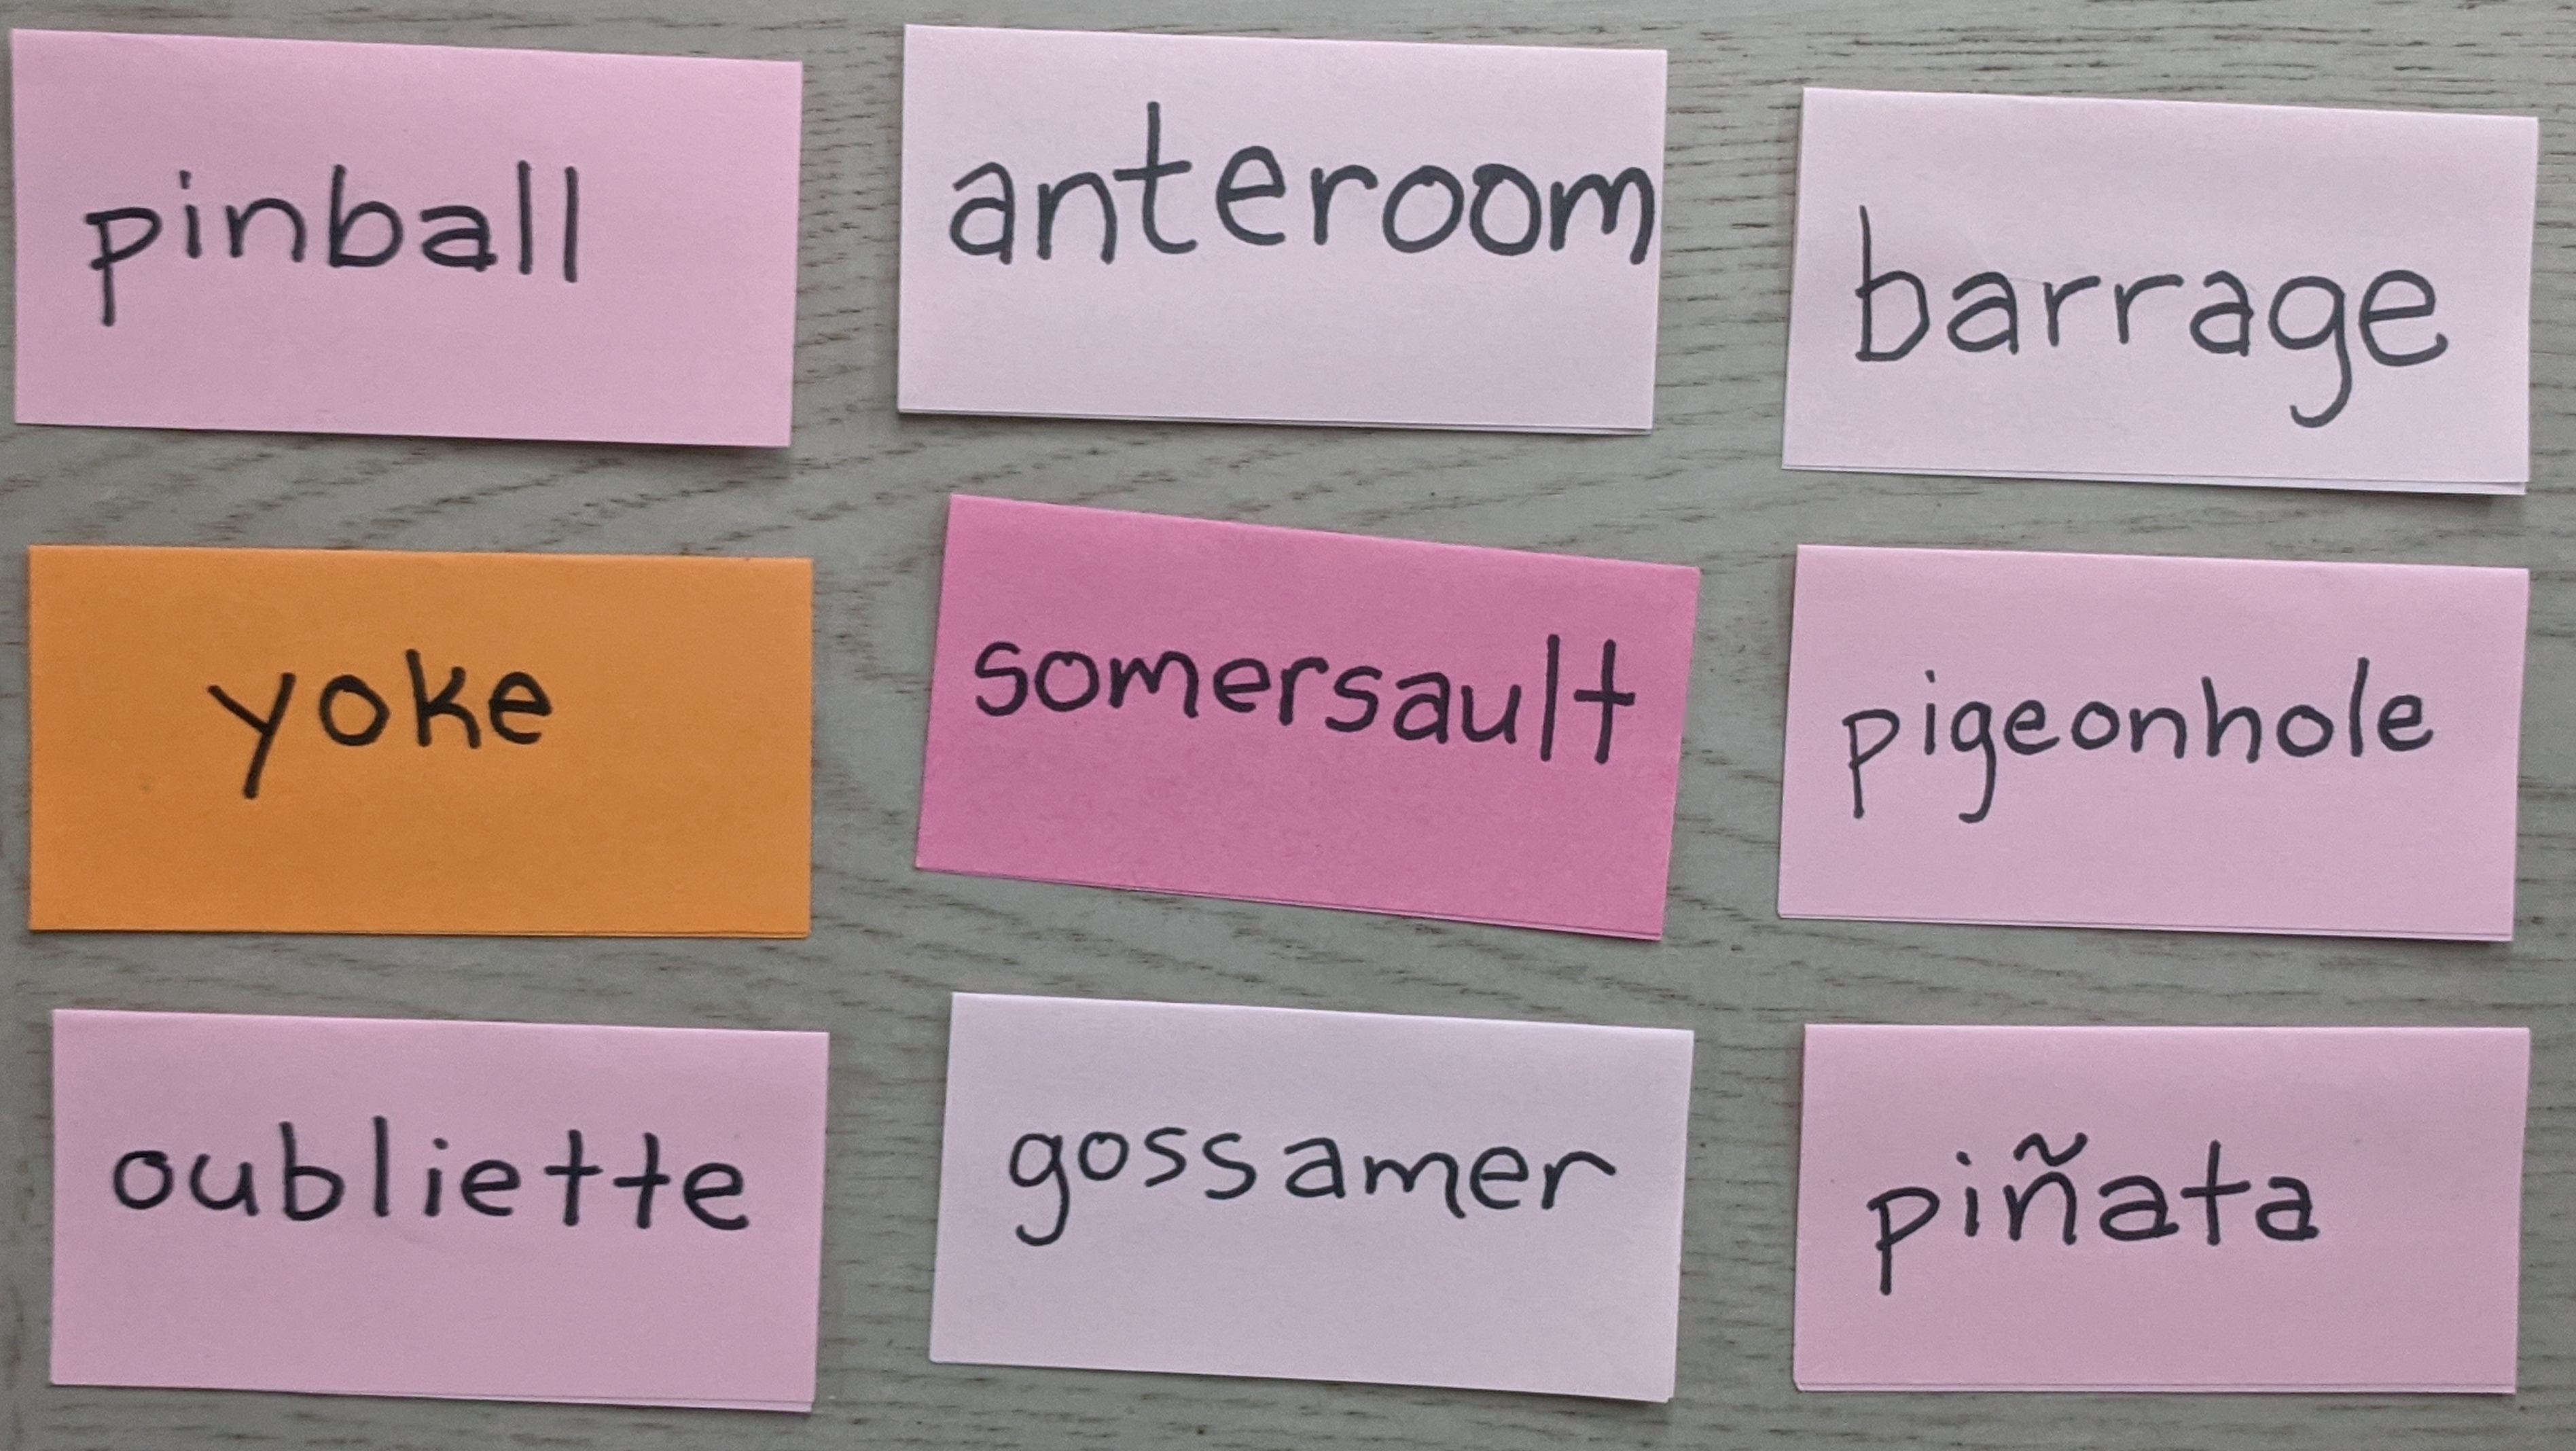 pinball
anteroom
barrage
yoke
somersault
pigeonhole
oubliette
gossamer
piñata